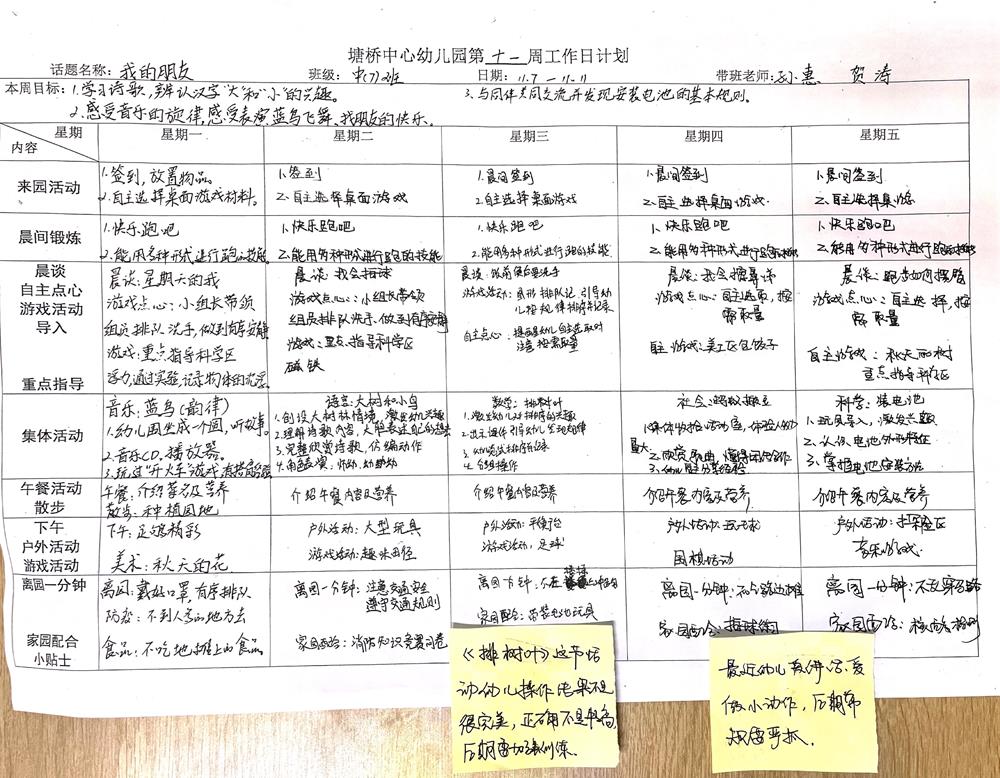 塘桥中心幼儿园第十一周工作日计划
话题名称：我的朋友 班级：中(7)班 日期：11.7 — 11.11 带班老师：孙惠 贺涛
本周目标：1.学习诗歌，辨认汉字"大"和"小"的兴趣。 3.与同伴共同交流并发现安装电池的基本规则。
2.感受音乐的旋律，感受表演蓝鸟飞舞、找朋友的快乐。
星期 内容 星期一 星期二 星期三 星期四 星期五
来园活动
1.签到，放置物品。
2.自主选择桌面游戏材料。
1.签到
2.自主选择桌面游戏
1.晨间签到
2.自主选择桌面游戏
1.晨间签到
2.自主选择桌面游戏
1.晨间签到
2.自主选择桌游
晨间锻炼
1.快乐跑吧
2.能用多种形式进行跑的技能
1.快乐跑吧
2.能用多种形式进行跑的技能
1.快乐跑吧
2.能用多种形式进行跑的技能
1.快乐跑吧
2.能用多种形式进行跑的技能
1.快乐跑吧
2.能用多种形式进行跑的技能
晨谈
自主点心
游戏活动
导入
重点指导
晨谈：星期天的我
游戏点心：小组长带领
组员排队洗手，做到有序安静
游戏：重点指导科学区
浮力，通过实验，记录物体的沉浮
晨谈：我会拍球
游戏点心：小组长带领
组员排队洗手、做到有序安静
游戏：重点指导科学区
磁铁
晨谈：饭前便后要洗手
自主点心：提醒幼儿自主选取时
注意按需取量
晨谈：
游戏点心：自主选取，按
需取量
自主游戏：美工区包饺子
晨谈：
游戏点心：自主选择，按
需取量
自主游戏：秋天的树
重点指导科学区
集体活动
音乐：蓝鸟(韵律)
1.幼儿围坐成一个圆，听故事。
2.音乐CD、播放器。
3.玩过"开火车"游戏
语言：大树和小鸟
1.创设大树林情境，激发幼儿兴趣
2.理解诗歌内容，大胆表述自己的想法
3.完整欣赏诗歌，仿编动作
4.
数学：排树叶
1.激发幼儿对排序的兴趣
2.出示课件引导幼儿发现规律
3.幼儿尝试排序并记录
4.
社会：
科学：装电池
1.玩具导入，激发兴趣
2.认识电池外形特征
3.掌握电池安装方法
午餐活动
散步
午餐：介绍菜名及营养
散步：种植园地
介绍午餐内容及营养
介绍午餐内容及营养
介绍午餐内容及营养
介绍午餐内容及营养
下午
户外活动
游戏活动
下午：足球精彩
美术：秋天的花
户外活动：大型玩具
游戏活动：趣味田径
户外活动：平衡台
游戏活动：足球
户外活动：玩球
围棋活动
户外活动：
音乐游戏
离园一分钟
离园：戴好口罩有序排队
防疫：不到人多的地方去
离园一分钟：注意交通安全
遵守交通规则
离园一分钟：
离园一分钟：
离园一分钟：不乱穿马路
家园配合
小贴士
食品：不吃地摊上的食品
家园配合：消防知识竞赛问卷
家园配合：带装电池玩具
家园配合：拍球
家园配合：核酸检测
《排树叶》这节活
动幼儿操作结果不是
很完美，正确率不是很高，
后期需加强训练。
最近幼儿
做小动作，后期常
规需严抓。